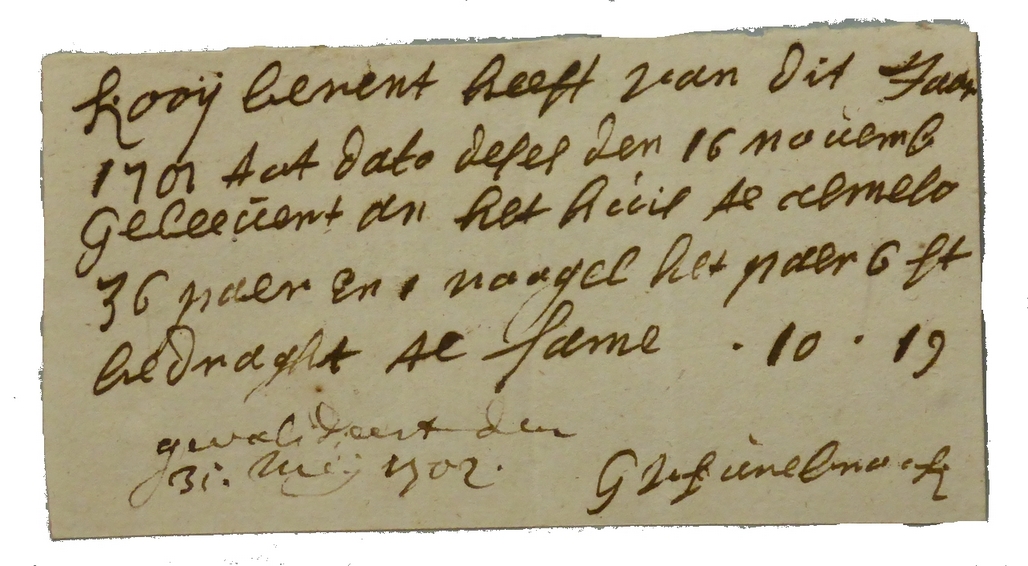 Kooij berent heeft van dit Jaar
1701 tot dato deses den 16 novemb
Geleevert an het huis te almelo
36 paer en 1 voogel het paer 6 st
bedraght te same . 10 . 19
gevalideert den
31. Meij 1702.
G